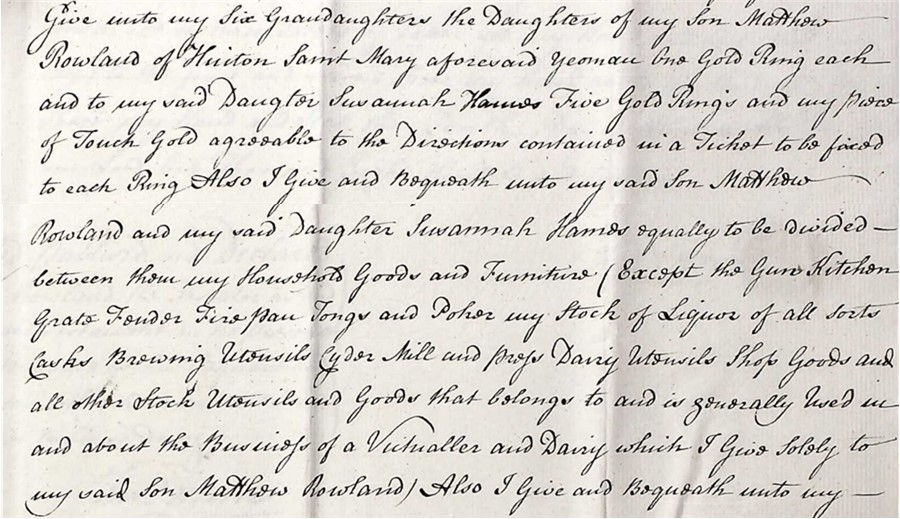 Give unto my Six Grandaughters the Daughters of my Son Matthew
Rowland of Hinton Saint Mary aforesaid Yeoman One Gold Ring each
and to my said Daugter Susannah Hames Five Gold Rings and my piece
of Touch Gold agreeable to the Directions contained in a Ticket to be fixed
to each Ring Also I Give and Bequeath unto my said Son Matthew
Rowland and my said Daughter Susannah Hames equally to be divided –
between them my Household Goods and Furniture (Except the Gun Kitchen
Grate Fender Firepan Tongs and Poker my Stock of Liquor of all sorts
Casks Brewing Utensils Cyder Mill and press Dairy Utensils Shop Goods and
all other Stock Utensils and Goods that belongs to and is generally Used in
and about the Business of a Victualler and Dairy which I Give Solely to
my said Son Matthew Rowland) Also I Give and Bequeath unto my —